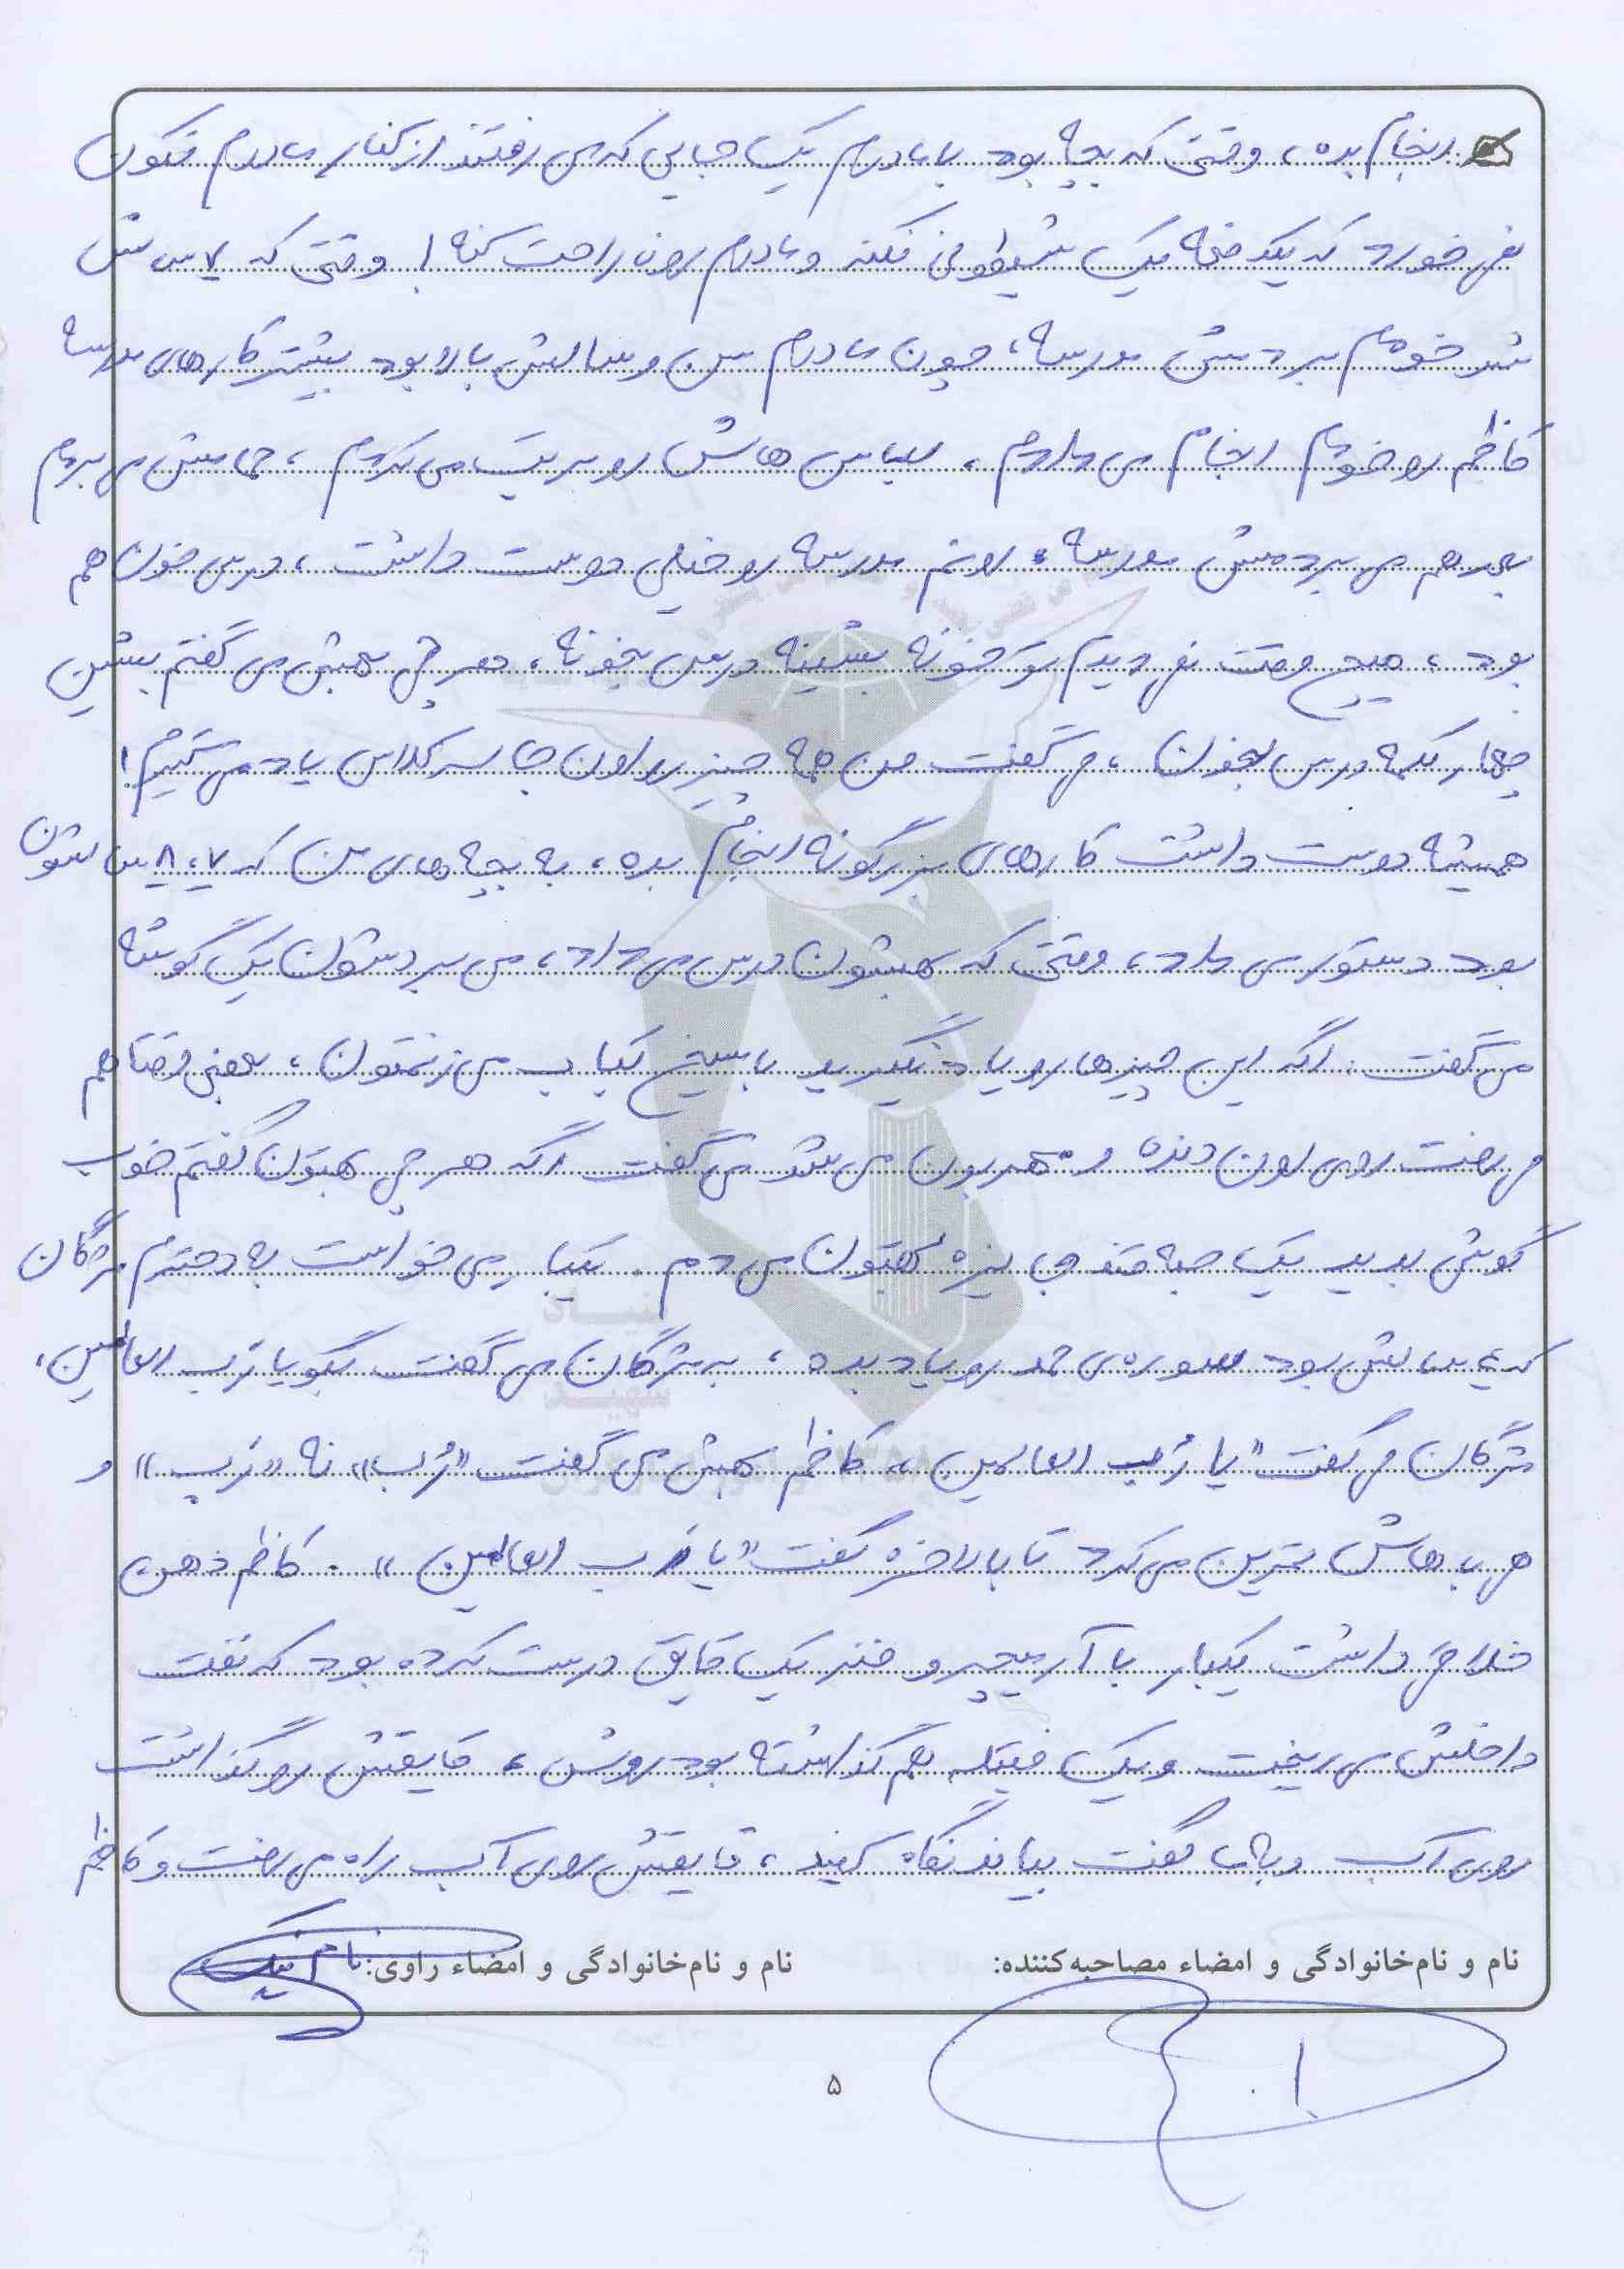 انجام بده، وقتی که بچه بود با مادرم یک جایی که می رفتند از کنار مادرم تکون
نمی خورد که یکدفعه یک شیطونی نکنه و مادرم رو ناراحت کنه! وقتی که ۷ سالش
شد خودم بردمش مدرسه، چون مادرم سن و سالش بالا بود بیشتر کارهای مدرسه
کاظم رو خودم انجام می دادم، لباس هاش رو می کردم، حمامش می بردم
بعد هم می بردمش مدرسه، اونم مدرسه رو خیلی دوست داشت، درس خون هم
بود، هیچ وقت نمی دیدم تو خونه بشینه درس بخونه، هر چی بهش می گفتم بشین
چهار کلمه درس بخون، می گفت من همه چیز رو اون جا سر کلاس یاد می گیرم!
همیشه دوست داشت کارهای بزرگونه انجام بده، به بچه های من که ۷، ۸ سالشون
بود دستور می داد، وقتی که بهشون درس می داد، می بردشون یک گوشه
می گفت: اگه این چیزها رو یاد نگیرید با سیخ کباب می زنمتون، بعضی وقتا هم
می رفت روی اون دنده و مهربون می شد می گفت اگه هر چی بهتون گفتم خوب
گوش بدید یک حبه قند جایزه بهتون می دم. یکبار می خواست به دخترم مژگان
که ۴ سالش بود سوره ی حمد رو یاد بده، به مژگان می گفت بگو یا رَب العالمین،
مژگان می گفت "یا رُب العالمین"، کاظم بهش می گفت "رُب" نه "رَب" و
هی باهاش تمرین می کرد تا بالاخره گفت "یا رَب العالمین". کاظم ذهن
خلاقی داشت یکبار با آرمیچر و فنر یک قایق درست کرده بود که نفت
داخلش می ریخت و یک فیتله هم گذاشته بود روش، قایقش رو گذاشت
روی آب و به ما گفت بیاید نگاه کنید، قایقش روی آب راه می رفت و کاظم
نام و نام‌خانوادگی و امضاء مصاحبه‌کننده:
نام و نام‌خانوادگی و امضاء راوی:
۵